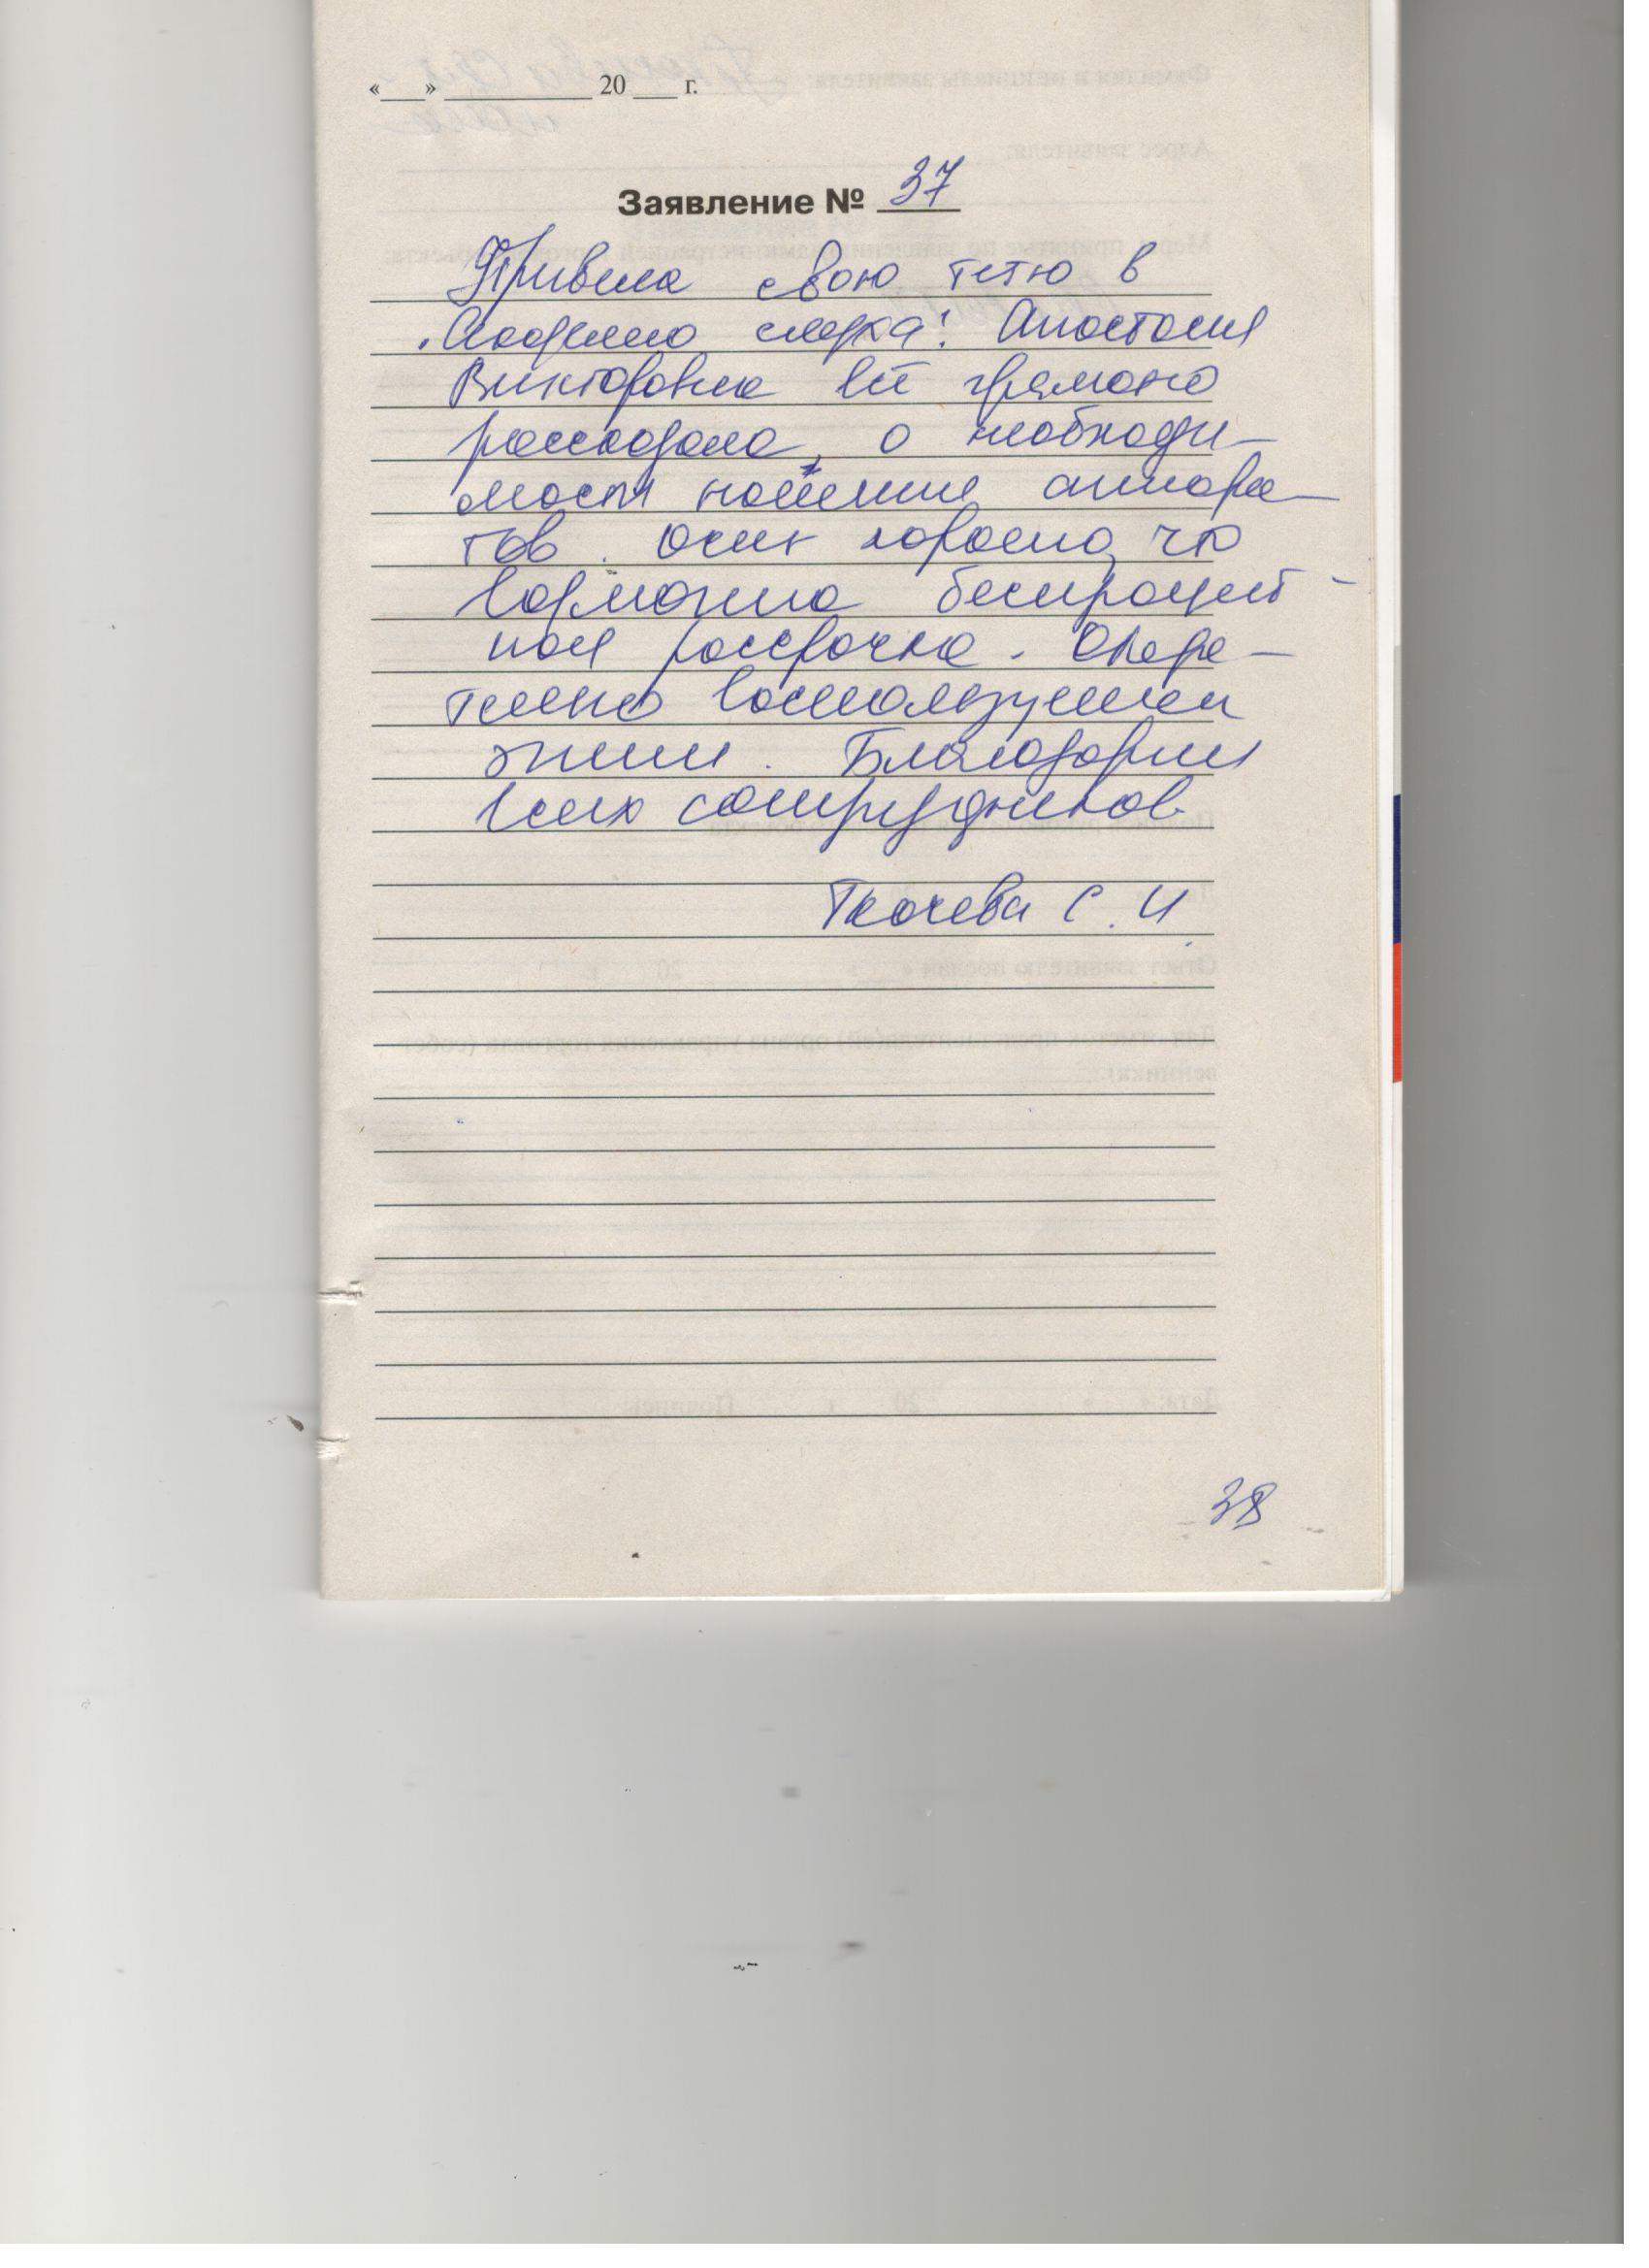 «___» ___________ 20 ___ г.
Заявление № 37
Привела свою тетю в
Академию слуха! Анастасия
Викторовна всё грамотно
рассказала, о необходи-
мости ношения аппара-
тов. Очень хорошо, что
возможна беспроцент-
ная рассрочка. Обяза-
тельно воспользуемся
этим. Благодарим
всех сотрудников.
Ткачева С. И.
38